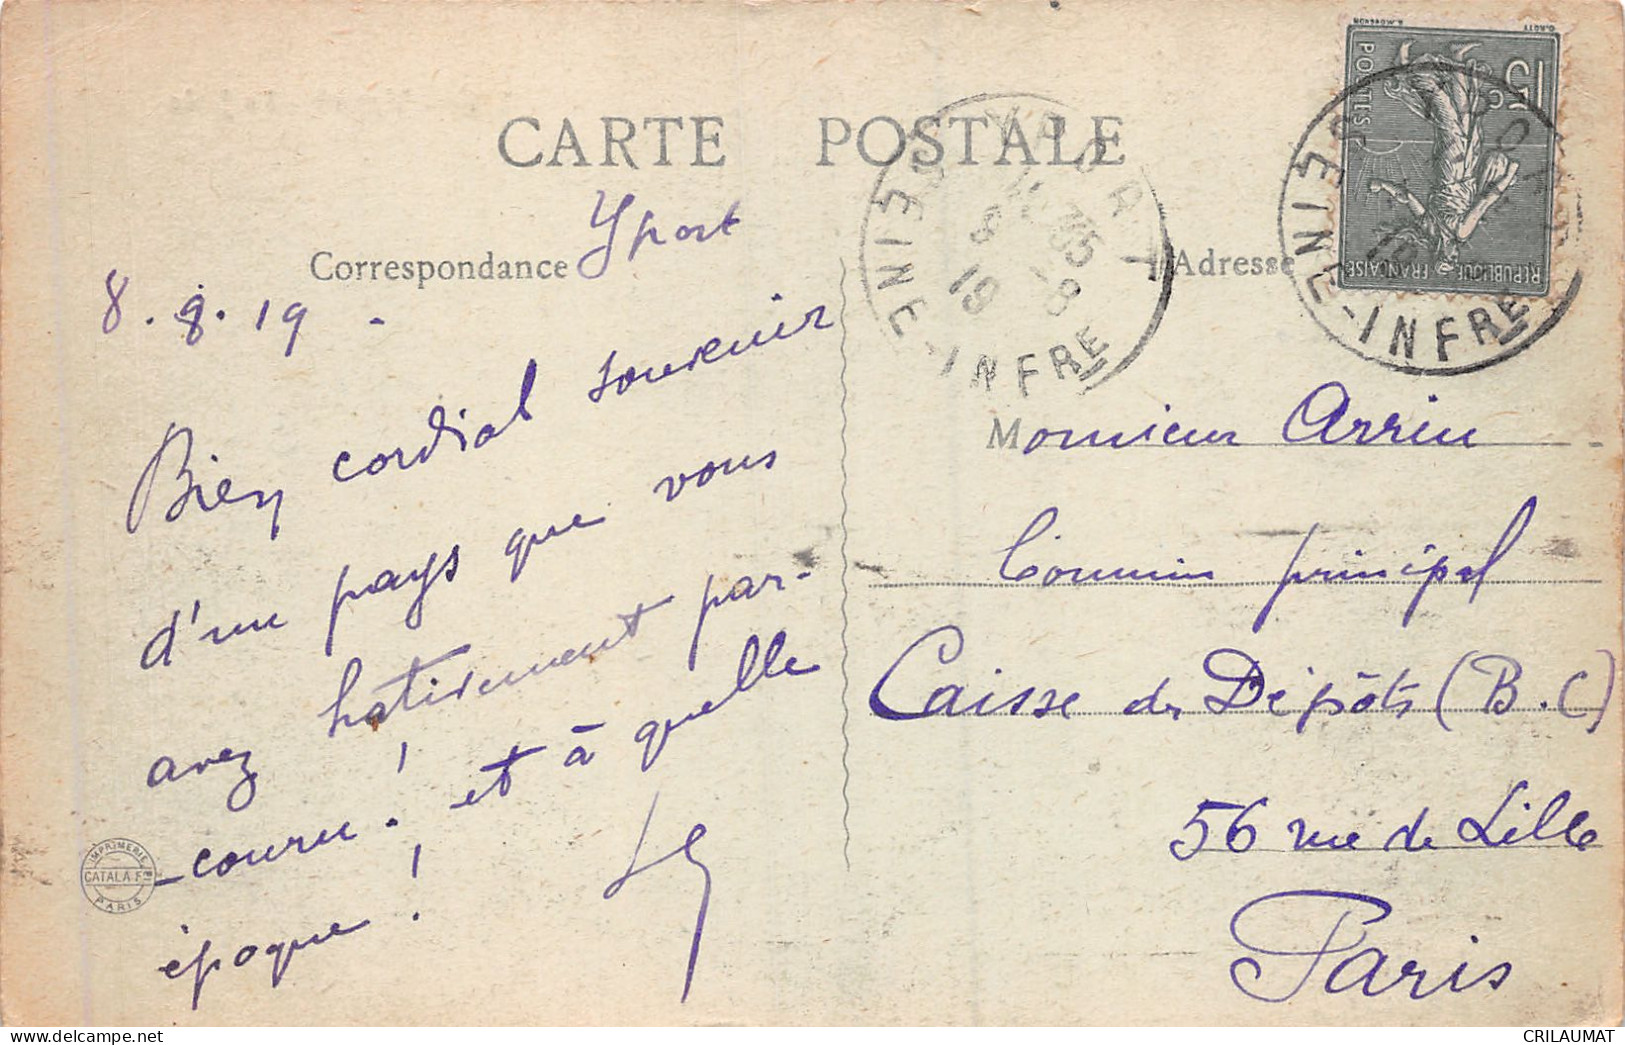 CARTE POSTALE
Correspondance
Adresse
Yport
8.8.19.
Bien cordial souvenir
d'un pays que vous
avez hativement par-
-couru ! et à quelle
époque !
Monsieur Arrin
Commis principal
Caisse des Dépôts (B.C)
56 rue de Lille
Paris
YPORT
SEINE-INFRE
16 35
8 - 8
19
YPORT
SEINE-INFRE
15 c
POSTES
REPUBLIQUE FRANÇAISE
O.ROTY
E.MOUCHON
IMPRIMERIE
CATALA FR
PARIS
CRILAUMAT